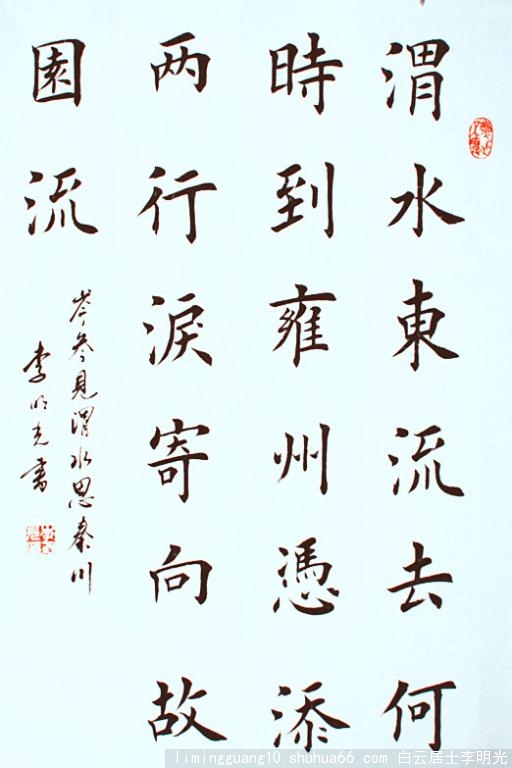 渭水東流去何
時到雍州憑添
两行淚寄向故
園流
岑參見渭水思秦川
李明光書
limingguang10.shuhua66.com 白云居士李明光